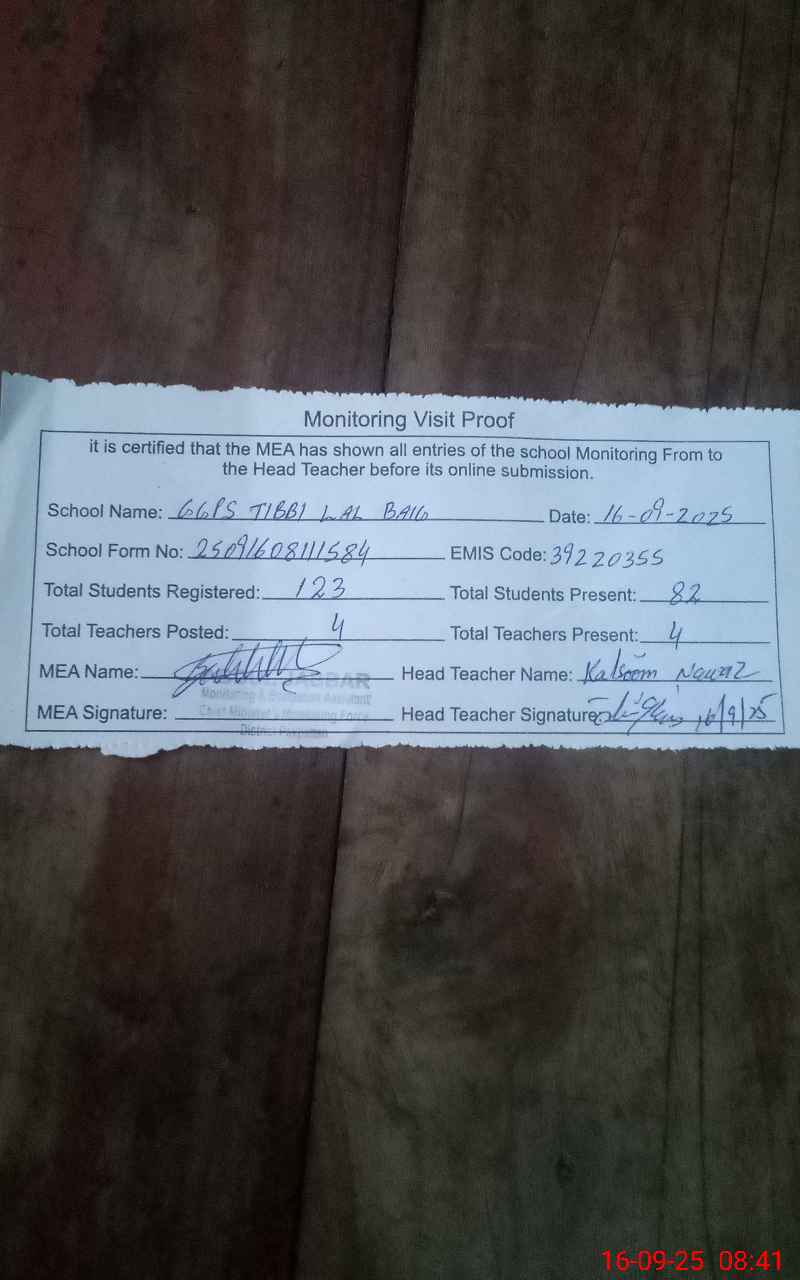 Monitoring Visit Proof
it is certified that the MEA has shown all entries of the school Monitoring From to
the Head Teacher before its online submission.
School Name: GGPS TIBBI LAL BAIG Date: 16-09-2025
School Form No: 25091608111584 EMIS Code: 39220355
Total Students Registered: 123 Total Students Present: 82
Total Teachers Posted: 4 Total Teachers Present: 4
MEA Name: JABBAR Head Teacher Name: Kalsoom Nawaz
Monitoring & Evaluation Assistant
MEA Signature: Head Teacher Signature: 16/9/25
Chief Minister's Monitoring Force
District Pakpattan
16-09-25 08:41